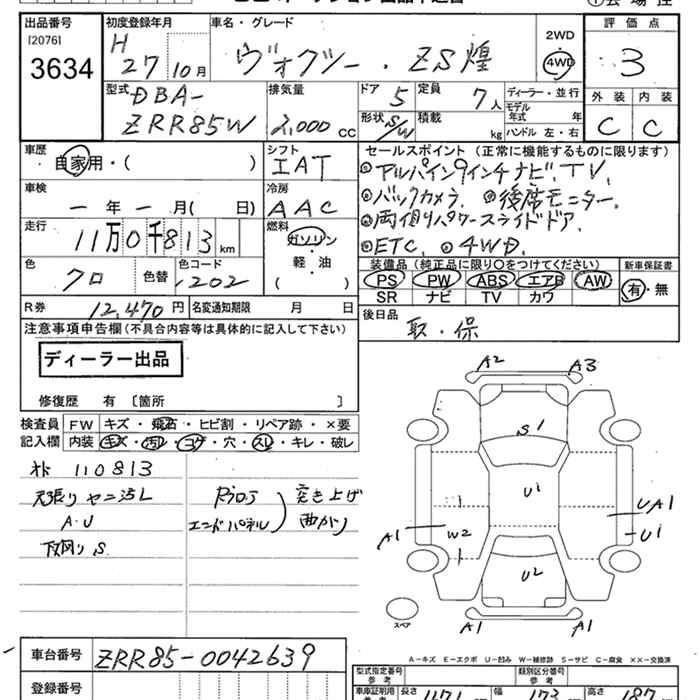 出品番号
[2076]
3634
初度登録年月
H
27 10月
車名・グレード
ヴォクシー・ZS煌
2WD
・
4WD
評価点
3
外装 内装
C C
型式
DBA-
ZRR85W
排気量
2,000 cc
ドア 5
定員 7人
形状 S/W
積載 kg
ディーラー・並行
モデル年式 年
ハンドル 左・右
車歴
自家用・( )
シフト
IAT
車検
ー年ー月( 日)
冷房
AAC
走行
11万0千813km
燃料
ガソリン
軽・油
( )
色
クロ
色替
色コード
202
R券 12,470円
名変通知期限 月 日
セールスポイント (正常に機能するものに限ります)
◎アルパイン9インチナビ.TV.
◎バックカメラ. ◎後席モニター.
◎両側パワースライドドア.
◎ETC. ◎4WD.
装備品(純正品に限り○をつけてください)
PS PW ABS エアB AW
SR ナビ TV カワ
新車保証書
有・無
後日品
取・保
注意事項申告欄(不具合内容等は具体的に記入して下さい)
ディーラー出品
修復歴 有 [箇所 ]
検査員記入欄
FW キズ・飛石・ヒビ割・リペア跡・×要
内装 キズ・汚レ・コゲ・穴・スレ・キレ・破レ
110813
天張りヤニ汚レ
A.U
下廻りS
Rフロア
エンドパネル
突き上げ
曲がり
A2 A3
S1
U1
U2
A1
W2
UA1
U1
A1 A1
スペア
A-キズ E-エクボ U-凹み W-補修跡 S-サビ C-腐食 ××-交換済
車台番号 ZRR85-0042639
登録番号
型式指定番号
参考
類別区分番号
参考
長さ 幅 173 高さ 187